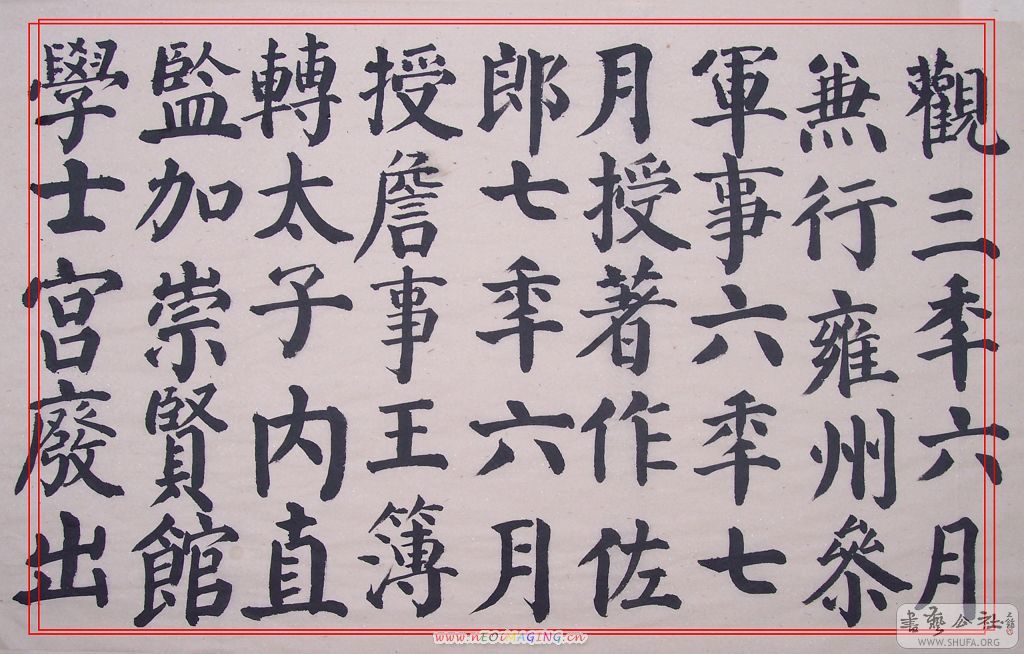 觀三年六月
兼行雍州參
軍事六年七
月授著作佐
郎七年六月
授詹事王簿
轉太子内直
監加崇賢館
學士宮廢出
書藝公社
WWW.SHUFA.ORG
www.nEOiMAGiNG.cn